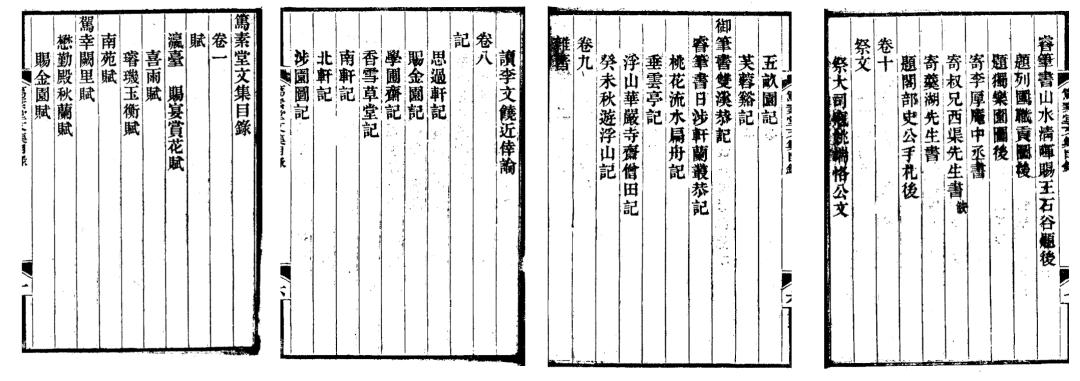 篤素堂文集目錄
卷一
賦
瀛臺 賜宴賞花賦
喜雨賦
璿璣玉衡賦
南苑賦
駕幸闕里賦
懋勤殿秋蘭賦
賜金園賦
讀李文饒近倖論
卷八
記
思過軒記
賜金園記
學圃齋記
香雪草堂記
南軒記
北軒記
涉園圖記
五畝園記
芙蓉谿記
御筆書雙溪恭記
睿筆書日涉軒蘭叢恭記
桃花流水扁舟記
垂雲亭記
浮山華嚴寺齋僧田記
癸未秋遊浮山記
卷九
雜著
睿筆書山水清暉賜王石谷題後
題列國職貢圖後
題獨樂園圖後
寄李厚菴中丞書
寄叔兄西渠先生書
寄羹湖先生書
題閣部史公手札後
卷十
祭文
祭大司寇姚端恪公文